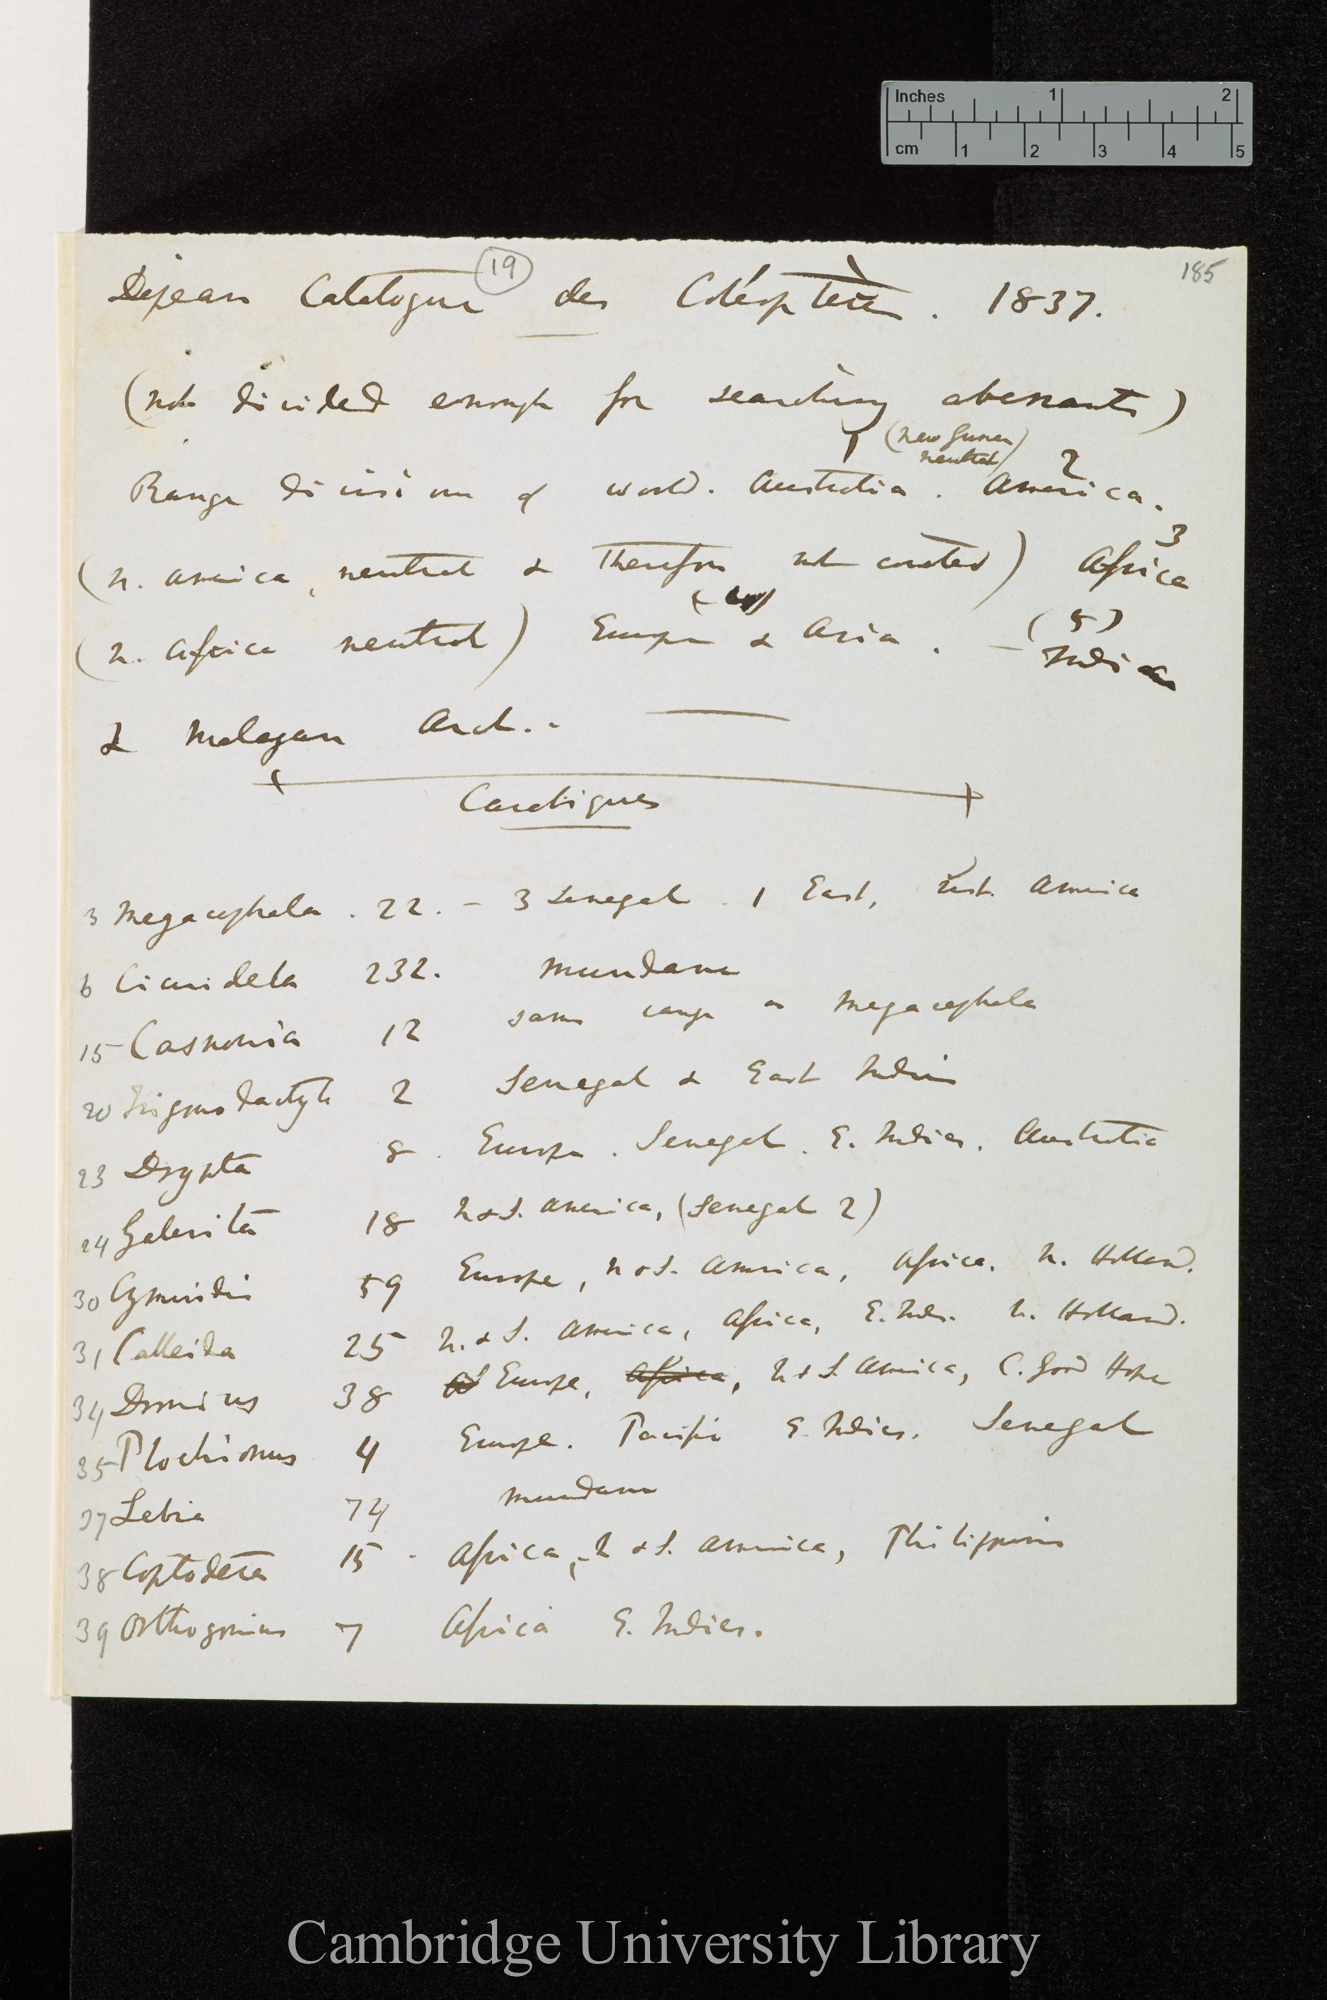 Inches 1 2
cm 1 2 3 4 5
19
185
Dejean Catalogue des Coléoptères. 1837.
(not divided enough for searching aberrants)
1 (New Guinea neutral) 2
Range divisions of world. Australia. America.
3
(N. America, neutral & therefore not counted) Africa
(4) (5)
(N. Africa neutral) Europe & Asia. — India
& Malayan Arch. —
Carabiques
3 Megacephala. 22. — 3 Senegal. 1 East, rest. America
6 Cicindela 232. mundane
15 Casnonia 12 same range as Megacephala
20 Trigonodactyla 2 Senegal & East Indies
23 Drypta 8. Europe. Senegal. E. Indies. Australia
24 Galerita 18 N & S. America, (Senegal 2)
30 Cymindis 59 Europe, N & S. America, Africa. N. Holland.
31 Calleida 25 N. & S. America, Africa, E. Inds. N. Holland.
34 Dromius 38 Europe, Africa, N & S America, C. Good Hope
35 Plochionus 4 Europe. Pacific E. Indies. Senegal
37 Lebia 74 mundane
38 Coptodera 15. Africa, N & S. America, Philippines
39 Orthogonius 7 Africa E. Indies.
Cambridge University Library